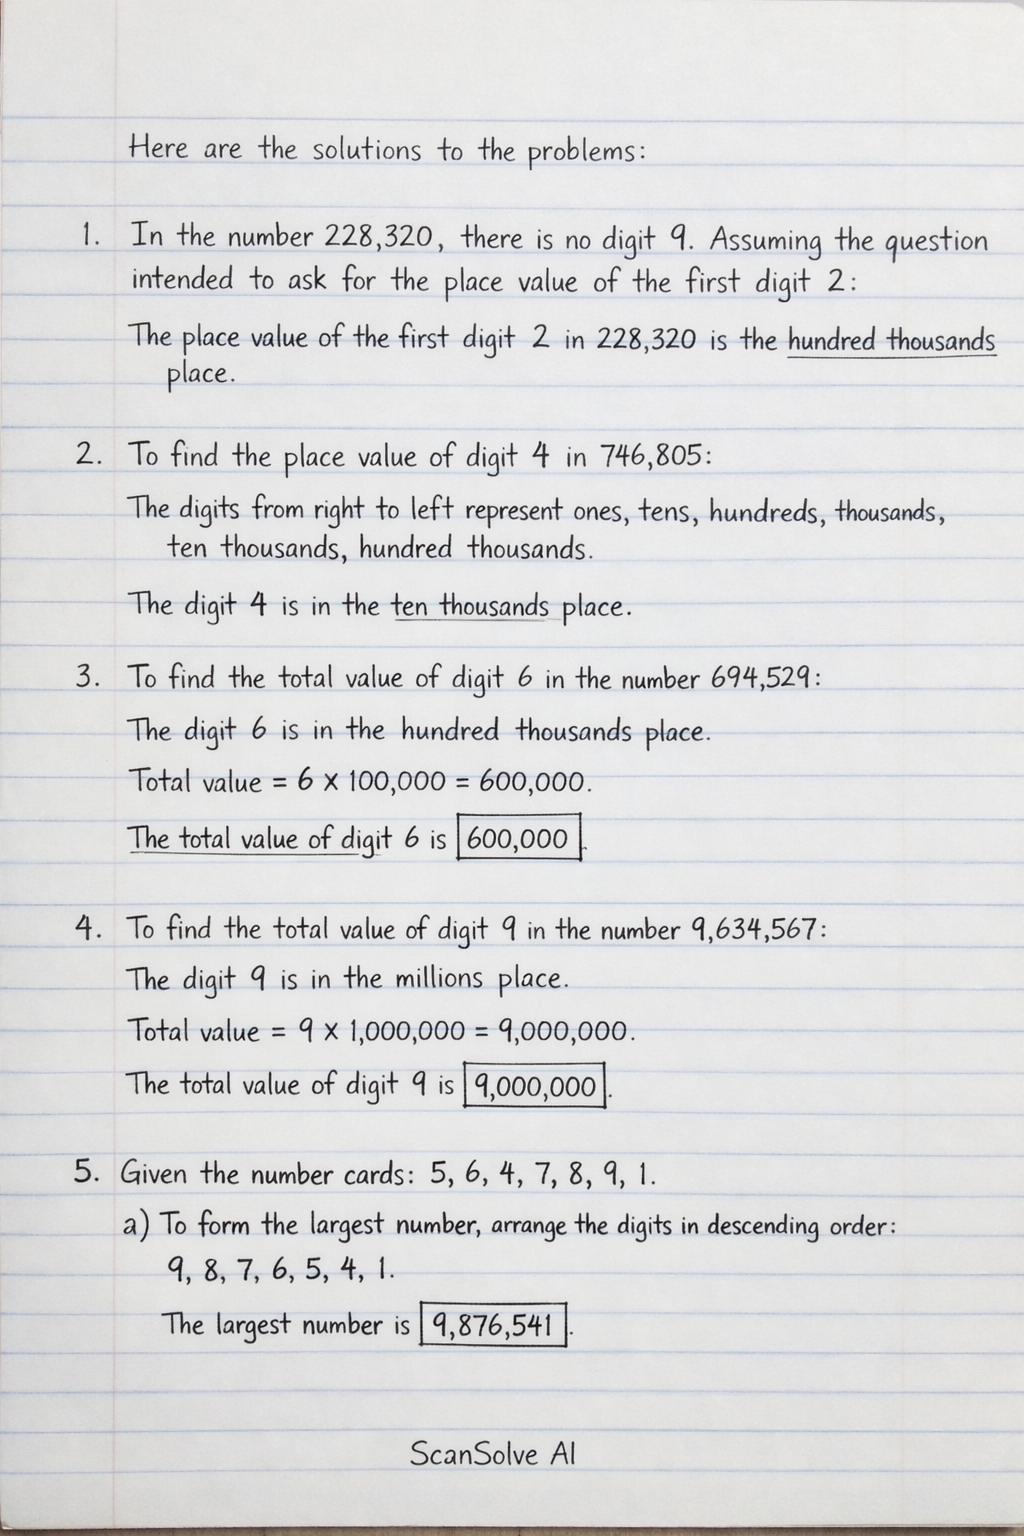 Here are the solutions to the problems:
1. In the number 228,320, there is no digit 9. Assuming the question
intended to ask for the place value of the first digit 2:
The place value of the first digit 2 in 228,320 is the hundred thousands
place.
2. To find the place value of digit 4 in 746,805:
The digits from right to left represent ones, tens, hundreds, thousands,
ten thousands, hundred thousands.
The digit 4 is in the ten thousands place.
3. To find the total value of digit 6 in the number 694,529:
The digit 6 is in the hundred thousands place.
Total value = 6 × 100,000 = 600,000.
The total value of digit 6 is 600,000.
4. To find the total value of digit 9 in the number 9,634,567:
The digit 9 is in the millions place.
Total value = 9 × 1,000,000 = 9,000,000.
The total value of digit 9 is 9,000,000.
5. Given the number cards: 5, 6, 4, 7, 8, 9, 1.
a) To form the largest number, arrange the digits in descending order:
9, 8, 7, 6, 5, 4, 1.
The largest number is 9,876,541.
ScanSolve AI